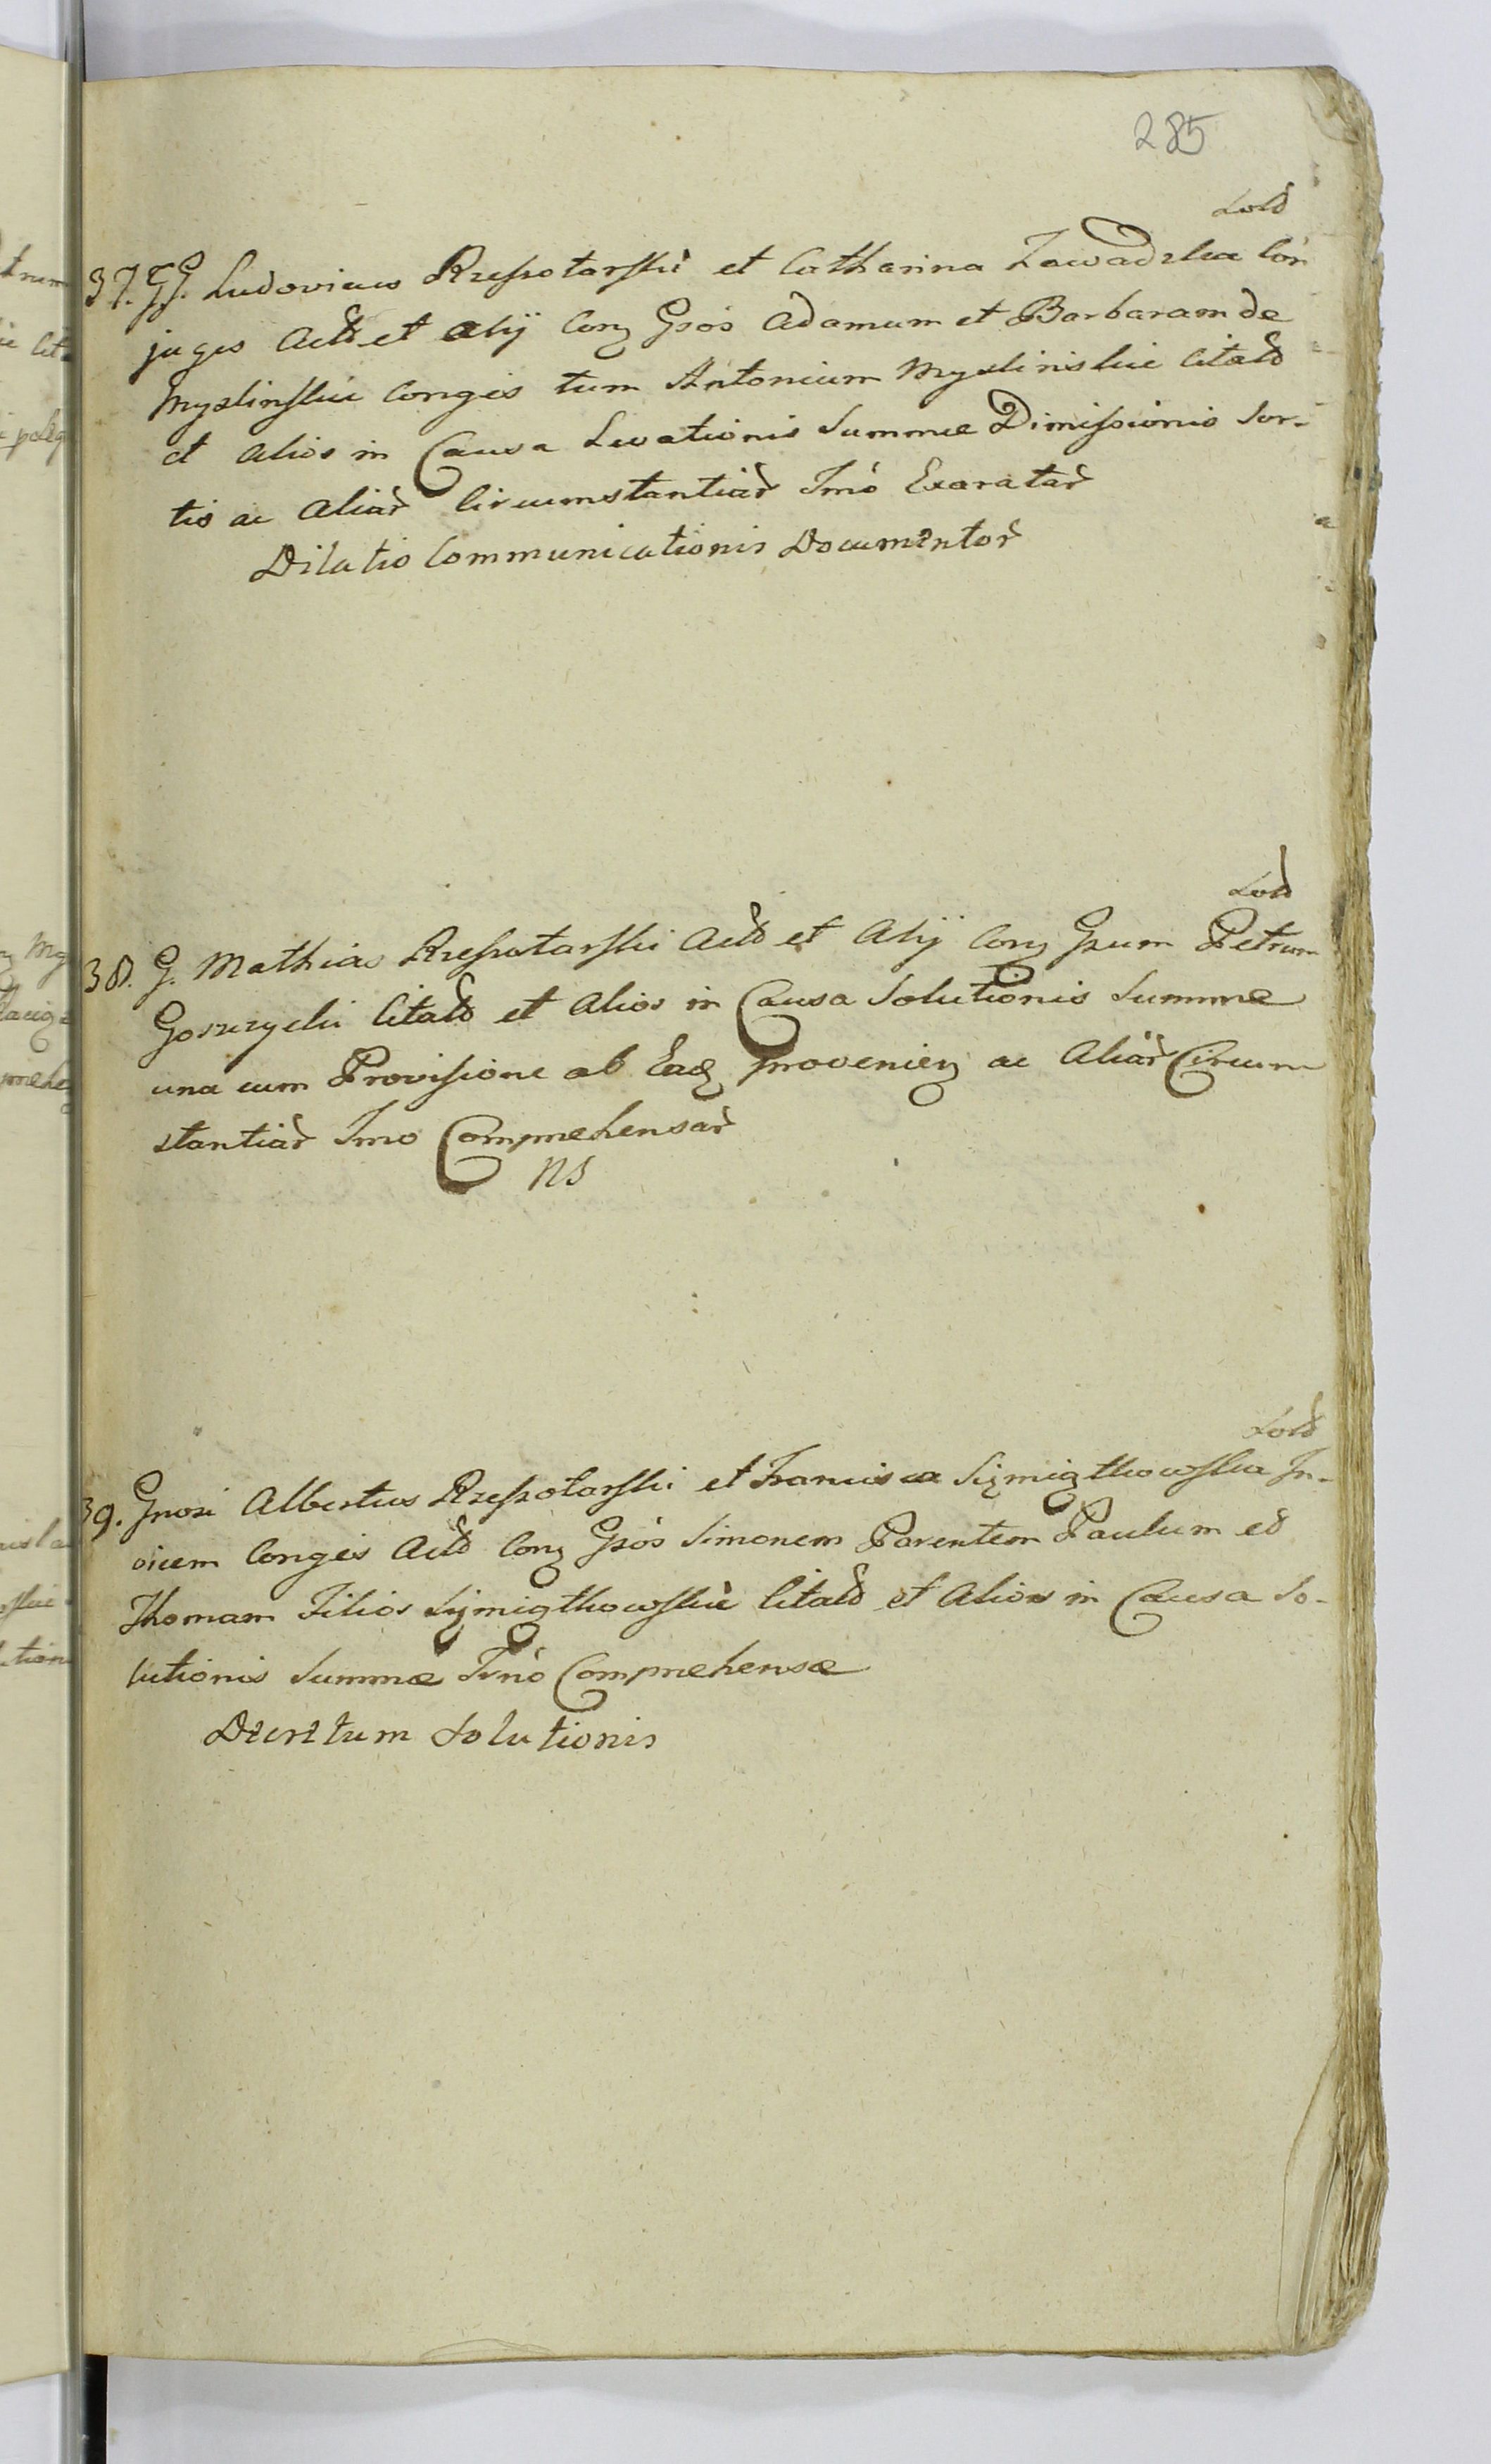 285
Lold
37. GG. Ludovicus Rzeszotarski et Catharina Zawadzka Con
juges Actd et alij Con Gsos Adamum et Barbaram de
Myslinskie Conges tum Antonium Myslinskie Citatd
et alios in Causa Levationis Summæ Dimissionis Sor-
tis ac aliar Circumstantiar Tmo Exaratar
Dilatio Communicationis Documentor
Lold
38. G. Mathias Rzeszotarski Actd et Alij Con Gsum Petrum
Goszczycki Citatd et alios in Causa Solutionis Summæ
una cum Provisione ab Eadq provenien ac Aliar Circum
stantiar Tmo Comprehensar
NS
Lold
39. Gnosi Albertus Rzeszotarski et Francisca Szmigtkowska In-
vicem Conges Actd Con Gsos Simonem Parentem Paulum ed
Thomam Filios Szmigtkowskie Citatd et Alios in Causa So-
lutionis Summæ Tmo Comprehensæ
Decretum Solutionis